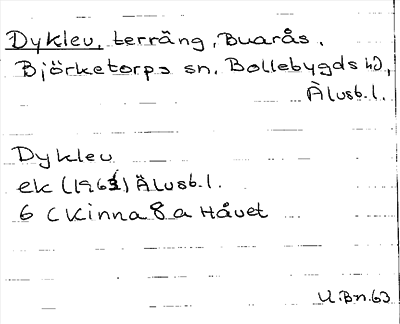 Dyklev, terräng, Buarås,
Björketorps sn, Bollebygds hd,
Älvsb.l.
Dyklev
ek (1961) Älvsb.l.
6 C Kinna 8 a Håvet
U.Bn.63